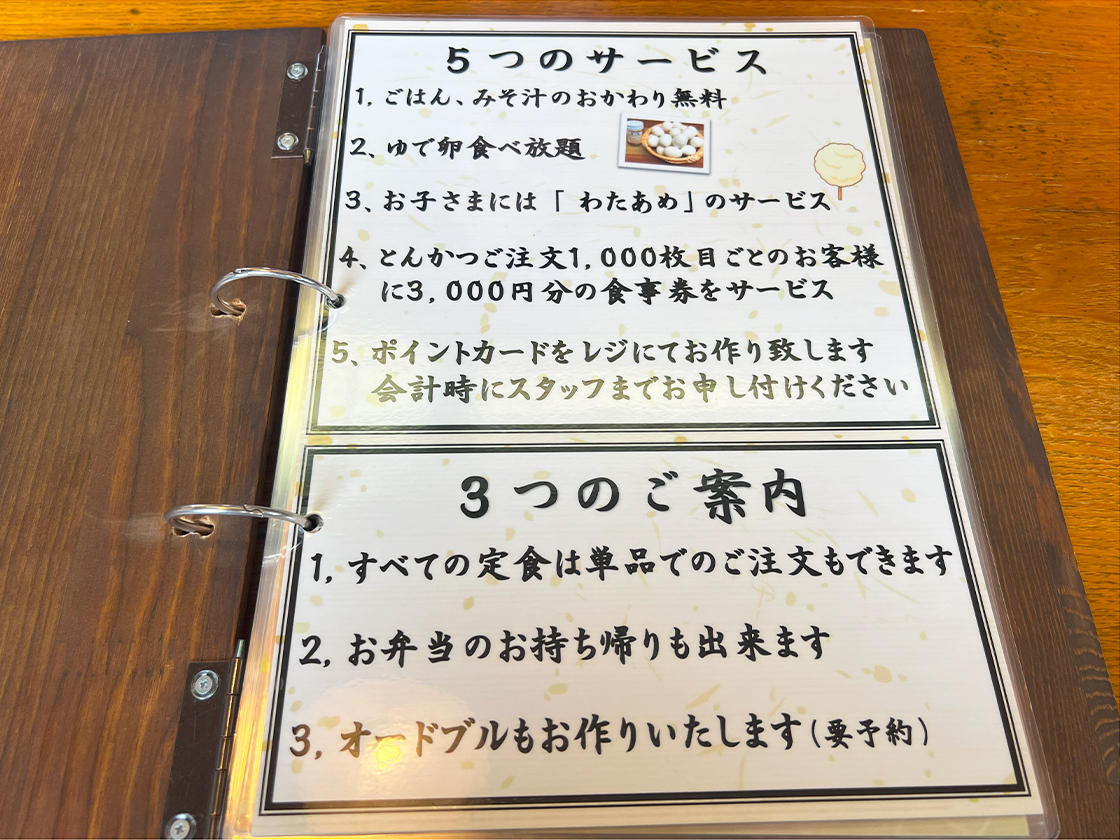 5つのサービス
1, ごはん、みそ汁のおかわり無料
2、ゆで卵食べ放題
3、お子さまには「わたあめ」のサービス
4、とんかつご注文1,000枚目ごとのお客様
に3,000円分の食事券をサービス
5、ポイントカードをレジにてお作り致します
会計時にスタッフまでお申し付けください
3つのご案内
1, すべての定食は単品でのご注文もできます
2, お弁当のお持ち帰りも出来ます
3, オードブルもお作りいたします(要予約)